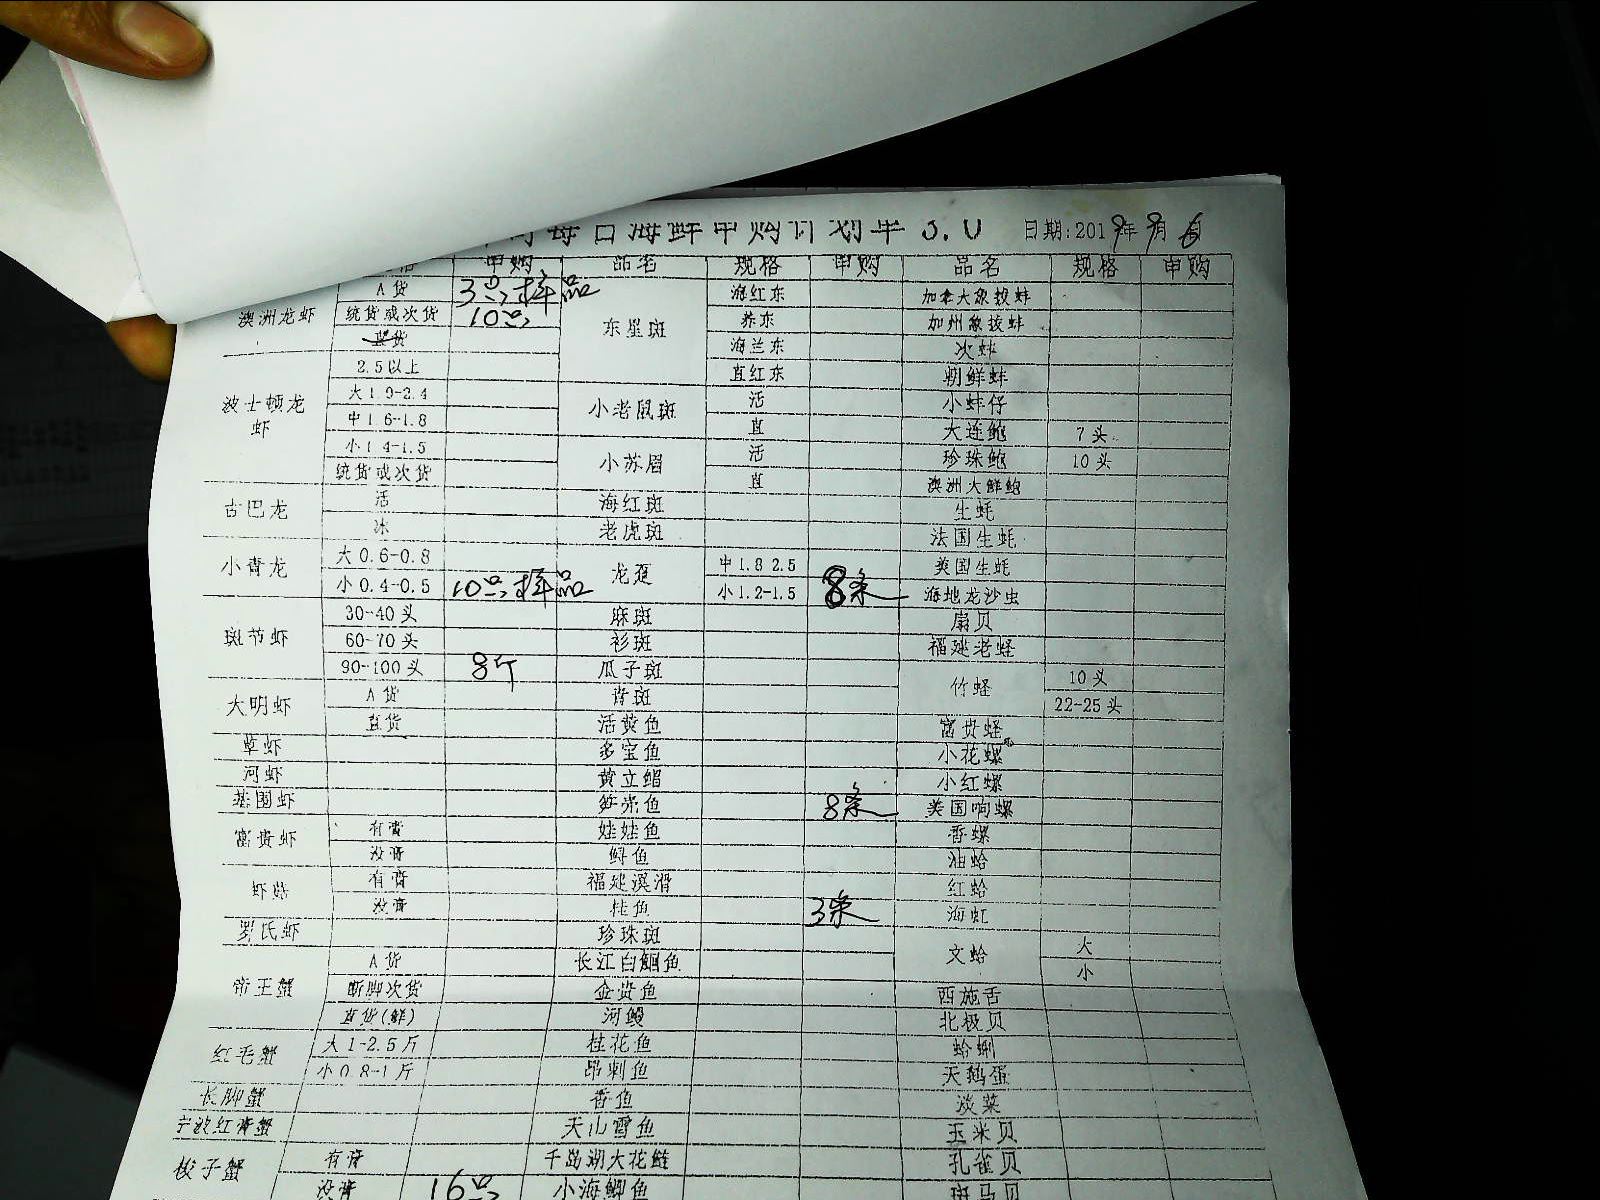 每日海鲜申购计划单 3.0 日期:2019年9月6日
申购 品名 规格 申购 品名 规格 申购
澳洲龙虾 A货 3只,样品 东星斑 海红东 加拿大象拔蚌
统货或次货 10只 养东 加州象拔蚌
直货 海兰东 次蚌
波士顿龙虾 2.5以上 直红东 朝鲜蚌
大1.9-2.4 小老鼠斑 活 小蚌仔
中1.6-1.8 直 大连鲍 7头
小1.4-1.5 小苏眉 活 珍珠鲍 10头
统货或次货 直 澳洲大鲜鲍
古巴龙 活 海红斑 生蚝
冰 老虎斑 法国生蚝
小青龙 大0.6-0.8 龙趸 中1.8 2.5 美国生蚝
小0.4-0.5 10只,样品 小1.2-1.5 8条 海地龙沙虫
斑节虾 30-40头 麻斑 扇贝
60-70头 衫斑 福建老蛏
90-100头 8斤 瓜子斑 竹蛏 10头
大明虾 A货 青斑 22-25头
直货 活黄鱼 富贵蛏
草虾 多宝鱼 小花螺
河虾 黄立鲳 小红螺
基围虾 笋壳鱼 8条 美国响螺
富贵虾 有膏 娃娃鱼 香螺
没膏 鲟鱼 油蛤
虾菇 有膏 福建溪滑 红蛤
没膏 桂鱼 3条 海虹
罗氏虾 珍珠斑 文蛤 大
帝王蟹 A货 长江白鮰鱼 小
断脚次货 金贵鱼 西施舌
直货(鲜) 河鳗 北极贝
红毛蟹 大1-2.5斤 桂花鱼 蛤蜊
小0.8-1斤 昂刺鱼 天鹅蛋
长脚蟹 香鱼 淡菜
宁波红膏蟹 天山雪鱼 玉米贝
梭子蟹 有膏 千岛湖大花鲢 孔雀贝
没膏 16只 小海鲫鱼 斑马贝